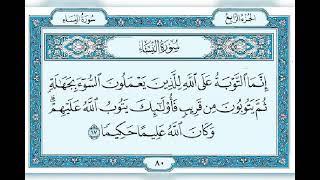 سُورَةُ النِّسَاءِ
الجُزْءُ الرَّابِعُ
سُورَةُ النِّسَاءِ
إِنَّمَا التَّوْبَةُ عَلَى اللَّهِ لِلَّذِينَ يَعْمَلُونَ السُّوءَ بِجَهَالَةٍ
ثُمَّ يَتُوبُونَ مِن قَرِيبٍ فَأُولَٰئِكَ يَتُوبُ اللَّهُ عَلَيْهِمْ ۗ
وَكَانَ اللَّهُ عَلِيمًا حَكِيمًا ١٧
٨٠